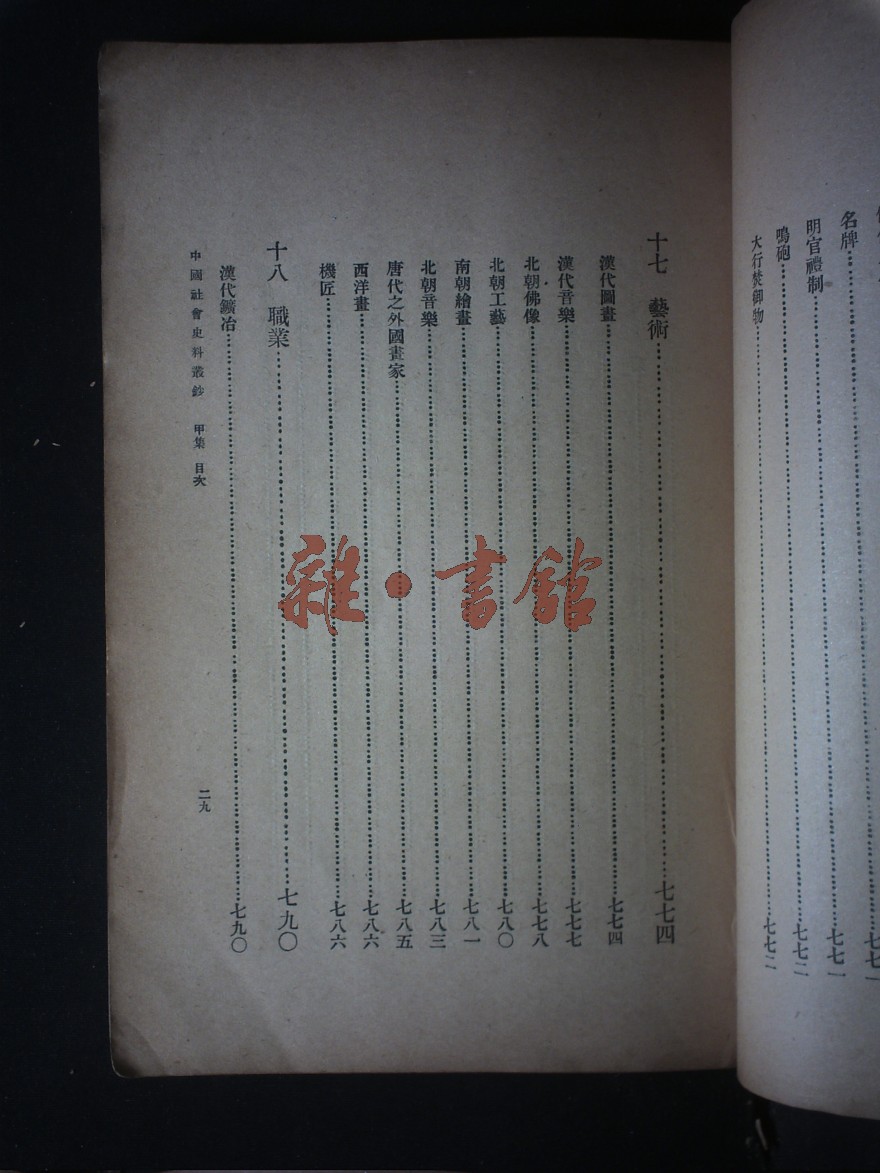 名牌……七七一
明官禮制……七七一
鳴砲……七七二
大行焚御物……七七二
十七 藝術……七七四
漢代圖畫……七七四
漢代音樂……七七七
北朝佛像……七七八
北朝工藝……七八〇
南朝繪畫……七八一
北朝音樂……七八三
唐代之外國畫家……七八五
西洋畫……七八六
機匠……七八六
十八 職業……七九〇
漢代鑛冶……七九〇
中國社會史料叢鈔 甲集 目次
二九
雜·書館